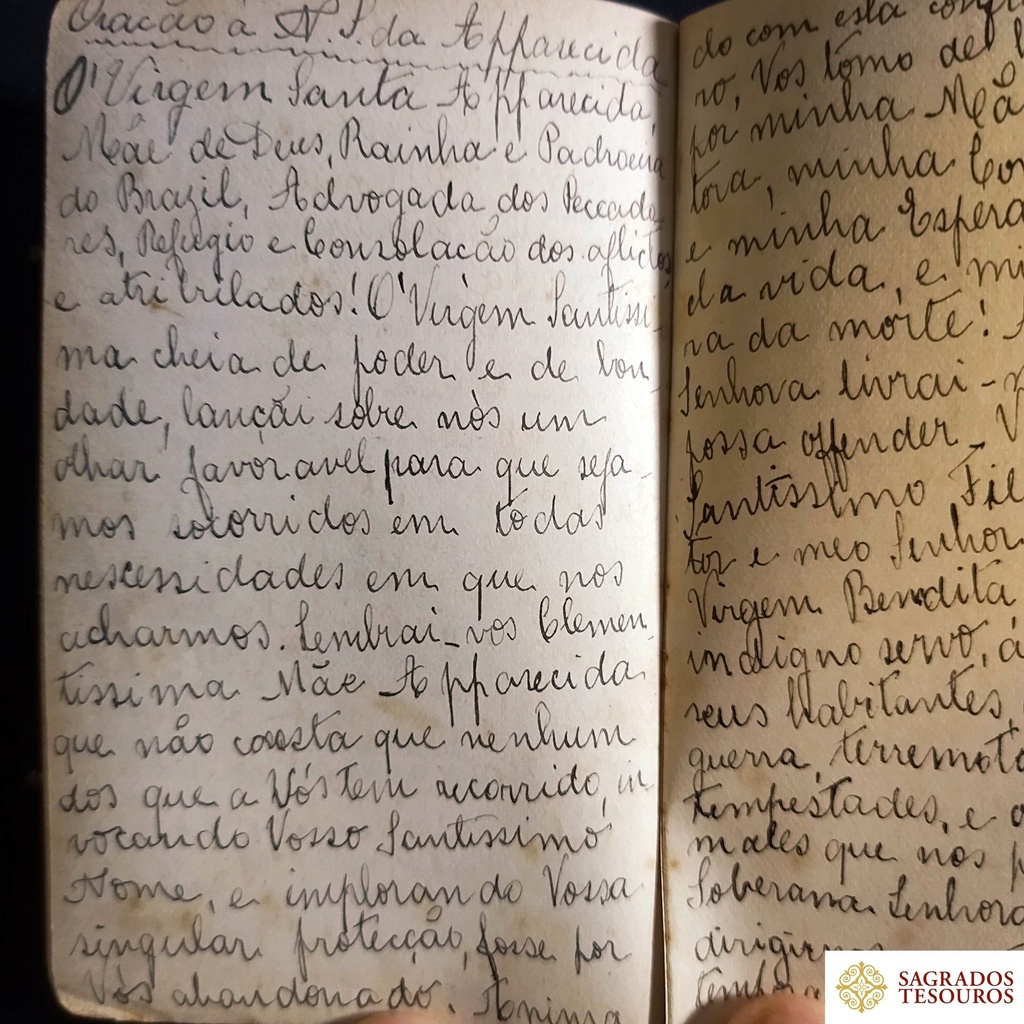 Oração á N. S. da Apparecida
O' Virgem Santa Apparecida,
Mãe de Deus, Rainha e Padroeira
do Brazil, Advogada dos Peccado
res, Refugio e Consolação dos aflictos
e atribulados! O' Virgem Santissi
ma cheia de poder e de bon
dade, lançái sôbre nós um
olhar favoravel para que seja
mos socorridos em tôdas
nescessidades em que nos
acharmos. Lembrai-vos Clemen
tissima Mãe Apparecida
que não consta que nenhum
dos que a Vós tem recorrido, in
vocando Vosso Santissimo
Nome, e implorando Vossa
singular protecção, fosse por
Vós abandonado. Anima
do com esta
ro, Vos tômo de
por minha Mã
tora, minha Con
e minha Espera
da vida, e mi
ra da morte!
Senhora livrai-
possa offender - V
Santissimo Fil
tor e meo Senhor
Virgem Bendita
indigno servo, á
seus Habitantes,
guerra, terremoto
tempestades, e
males que nos p
Soberana Senhora
dirigir
SAGRADOS
TESOUROS